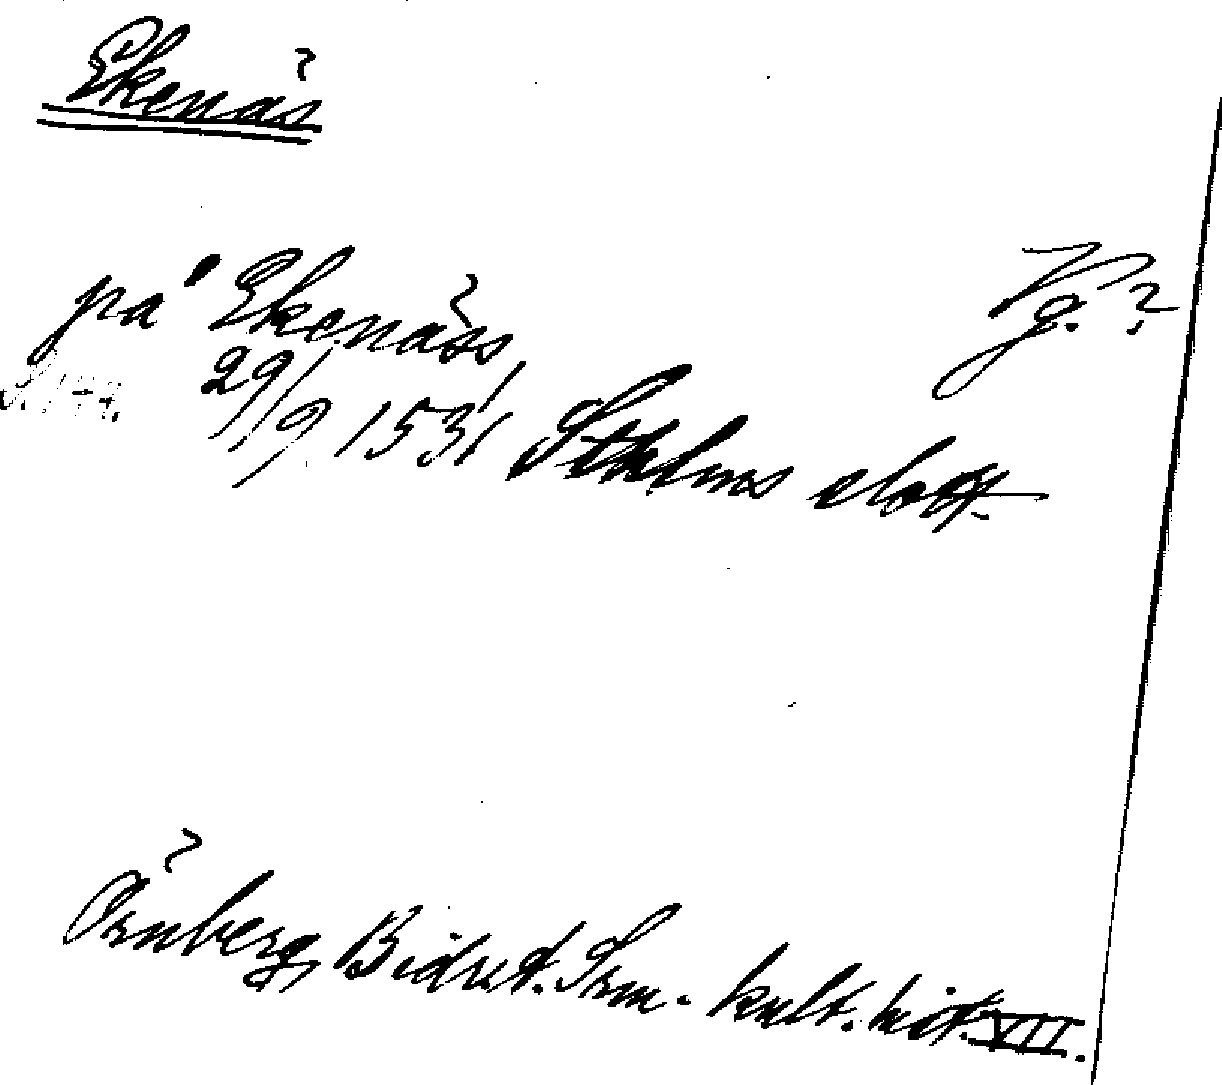 Ekenäs
på Ekenäss Vg.?
29/9 1531 Sthlms slott.
Örnberg, Bidr. t. Srm. kult. hist. VII.